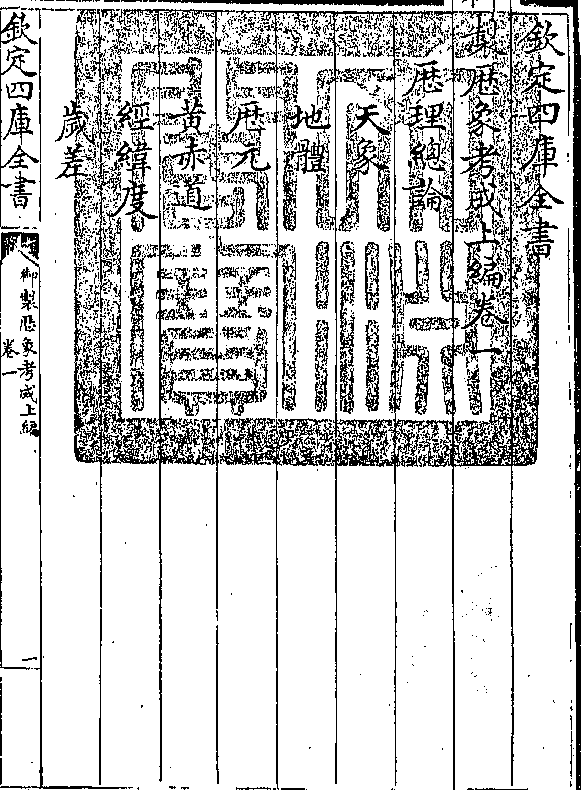 欽定四庫全書
製歴象考成上編卷一
歴理總論
天象
地體
歴元
黄赤道
經緯度
歲差
欽定四庫全書
御製歴象考成上編
卷一
一